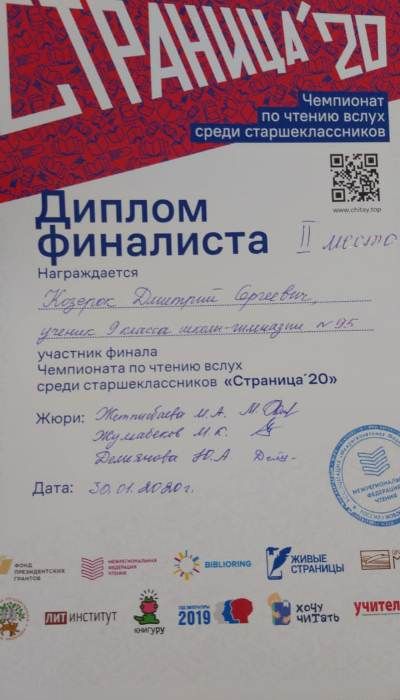 СТРАНИЦА'20
Чемпионат
по чтению вслух
среди старшеклассников
www.chitay.top
Диплом
финалиста
II место
Награждается
Козерок Дмитрий Сергеевич,
ученик 9 класса школы-гимназии №95
участник финала
Чемпионата по чтению вслух
среди старшеклассников «Страница'20»
Жюри:
Жетписбаева М.А.
Жумабеков М.К.
Демьянова Ю.А
Дата: 30.01.2020г.
МЕЖРЕГИОНАЛЬНАЯ
ФЕДЕРАЦИЯ
ЧТЕНИЯ
ФОНД
ПРЕЗИДЕНТСКИХ
ГРАНТОВ
МЕЖРЕГИОНАЛЬНАЯ
ФЕДЕРАЦИЯ
ЧТЕНИЯ
BIBLIORING
ЖИВЫЕ
СТРАНИЦЫ
ЛИТ ИНСТИТУТ
книгуру
2019
хочу
читать
учител